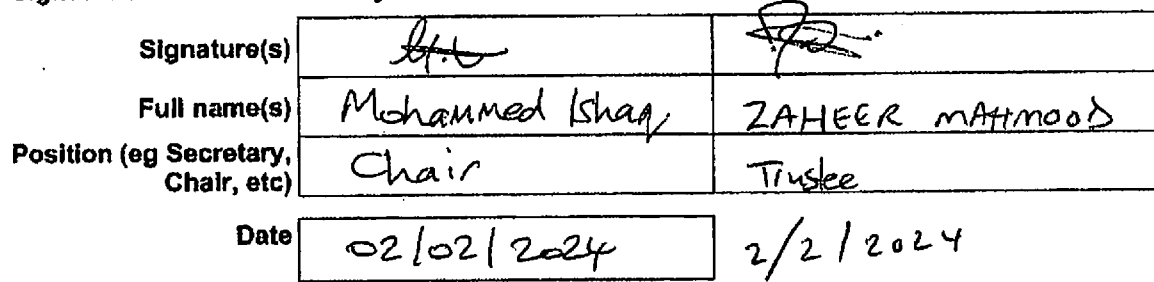 Signature(s)
Full name(s) Mohammed Ishaq ZAHEER MAHMOOD
Position (eg Secretary,
Chair, etc) Chair Trustee
Date 02/02/2024 2/2/2024